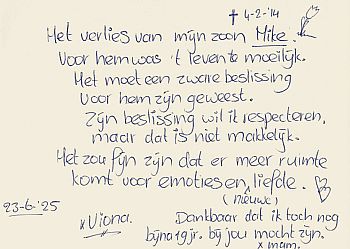 ✝ 4-2-'14
Het verlies van mijn zoon Mike.
Voor hem was 't leven te moeilijk.
Het moet een zware beslissing
voor hem zijn geweest.
Zijn beslissing wil ik respecteren,
maar dat is niet makkelijk.
Het zou fijn zijn dat er meer ruimte
komt voor emoties en liefde.
(nieuwe)
23-6-'25
x Viona.
Dankbaar dat ik toch nog
bijna 19 jr. bij jou mocht zijn.
x mam.